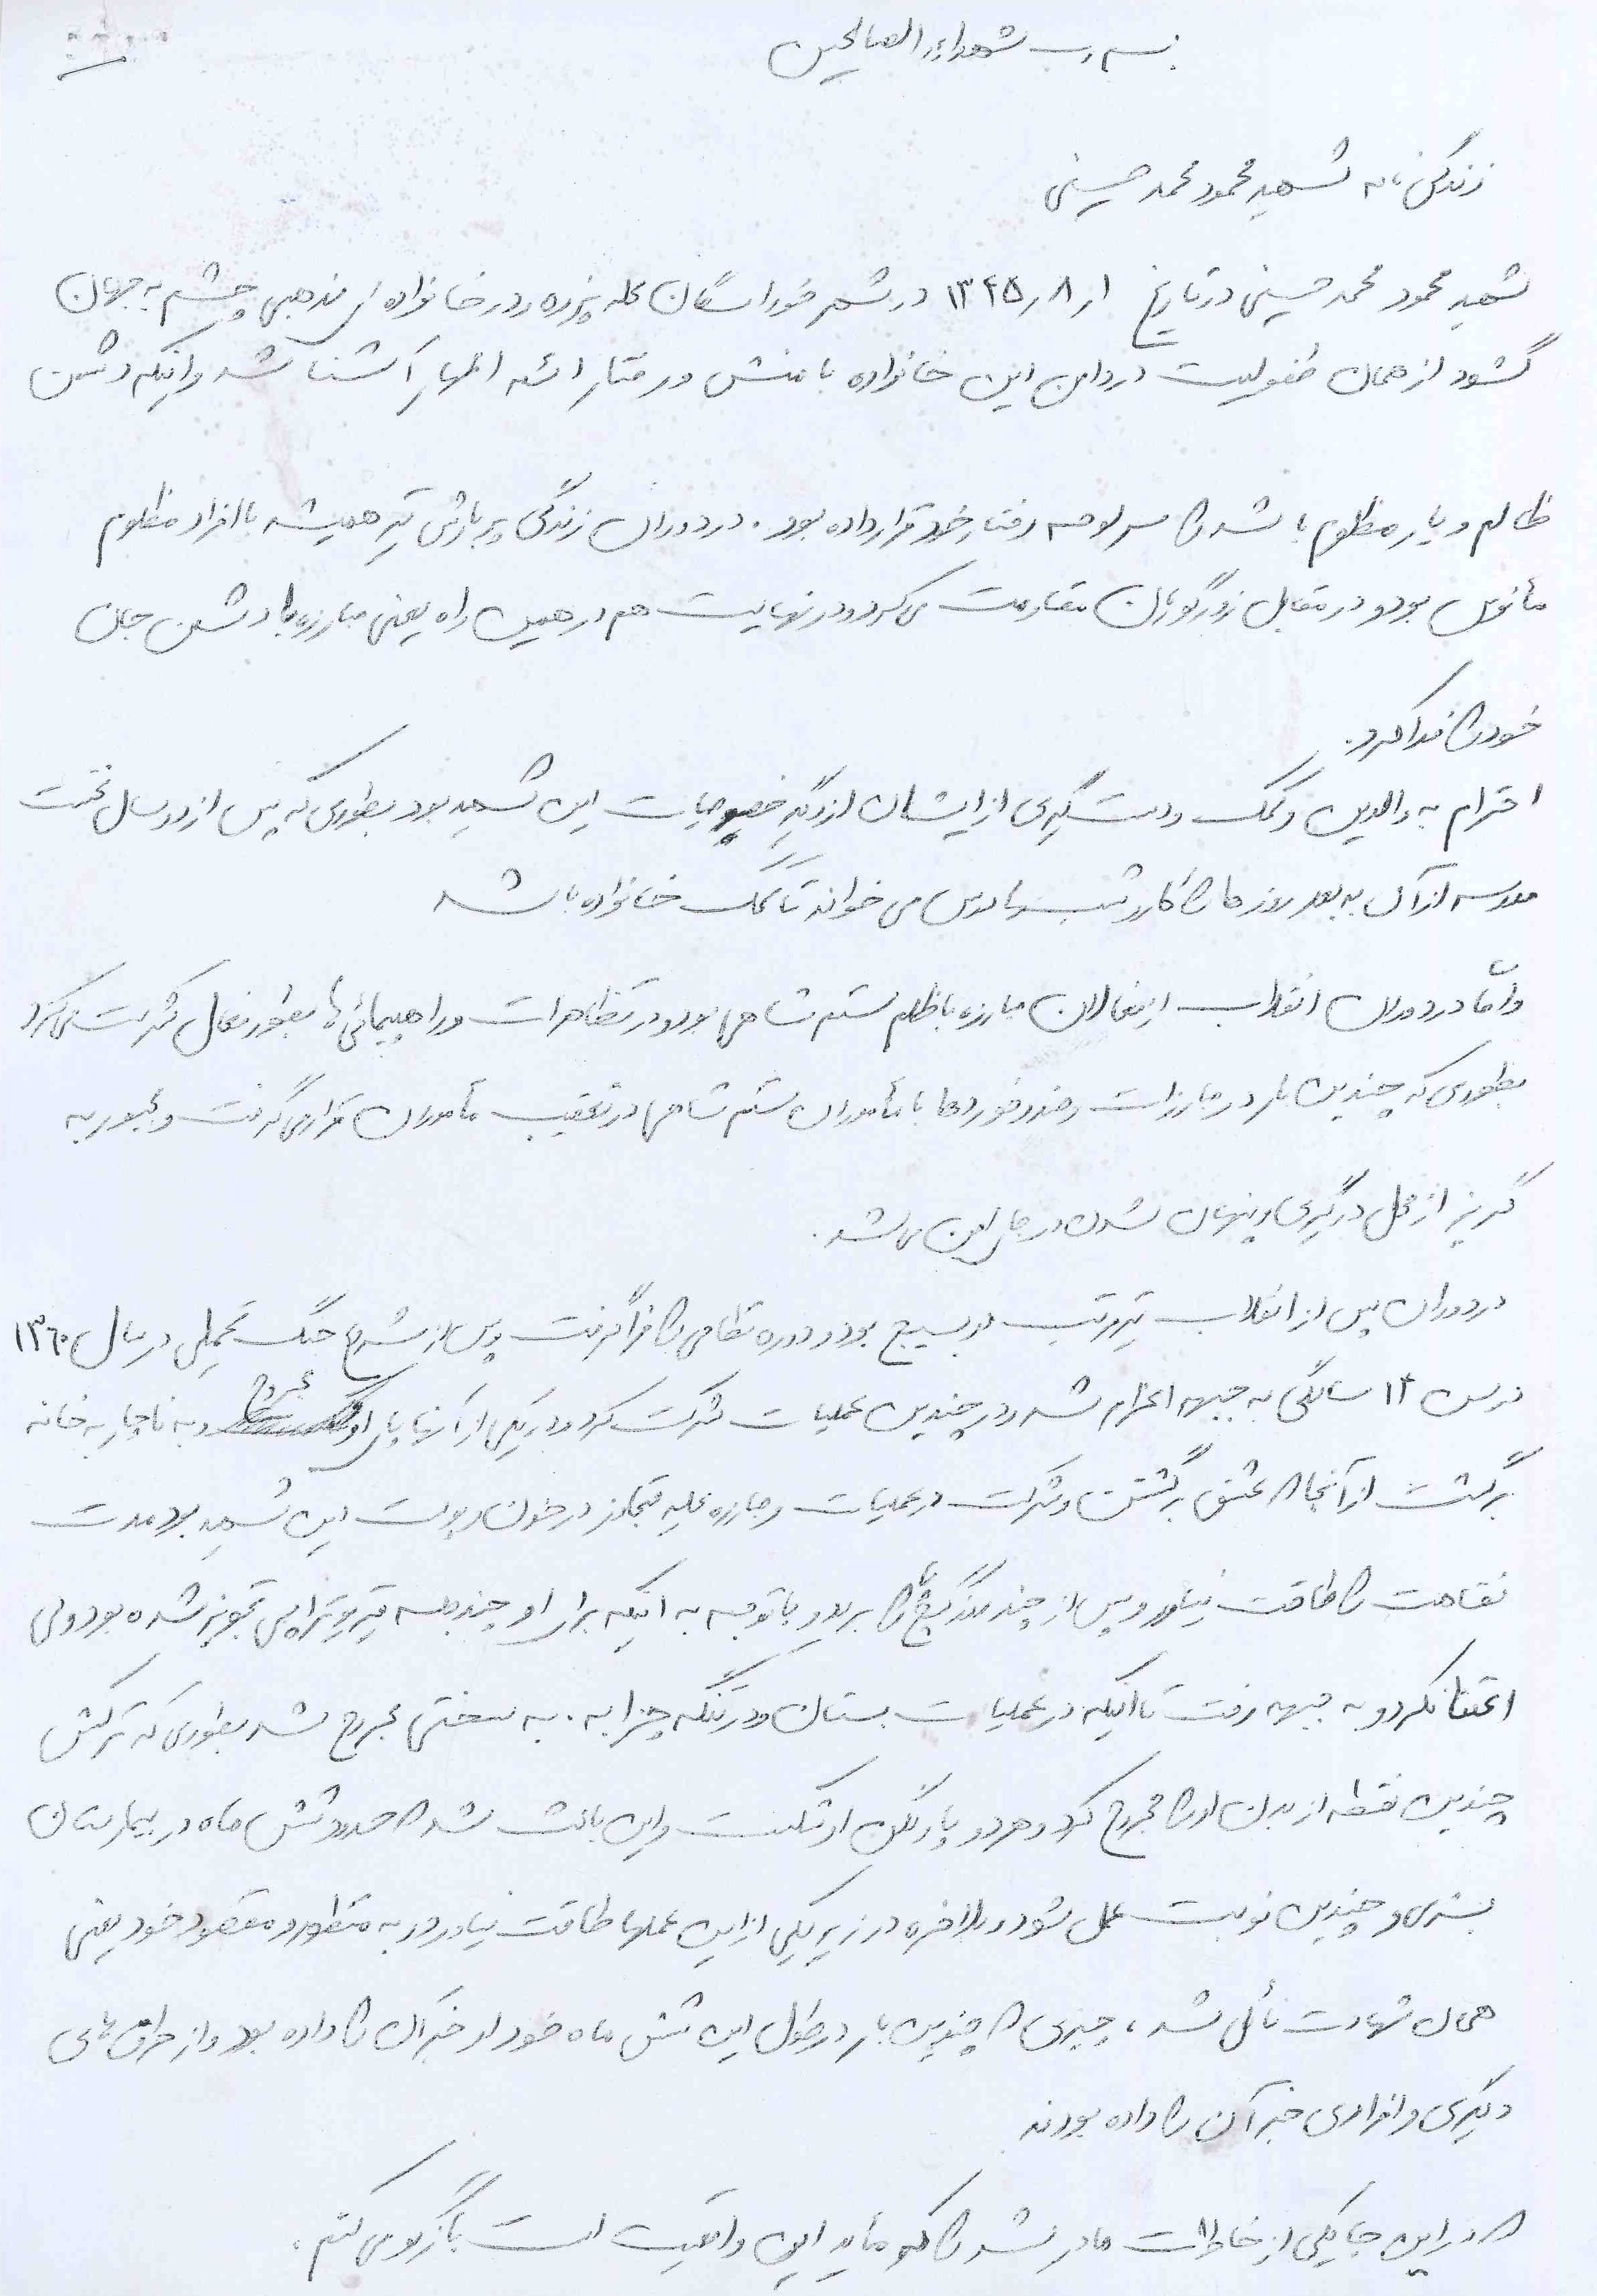 بسم رب شهداء و الصالحین
زندگی نامه شهید محمود محمد حسینی
شهید محمود محمد حسینی در تاریخ ۱ر۸ر۱۳۴۵ در شهر خوراسگان محله پزوه و در خانواده ای مذهبی چشم به جهان
گشود از همان طفولیت در دامن این خانواده با منش و رفتار ائمه اطهار آشنا شد و اینکه دشمن
ظالم و یار مظلوم باشد را سرلوحه رفتار خود قرار داده بود . در دوران زندگی پربارش نیز همیشه با افراد مظلوم
مأنوس بود و در مقابل زورگویان مقاومت می کرد و در نهایت هم در همین راه یعنی مبارزه با دشمن جان
خود را فدا کرد .
احترام به والدین و کمک و دست گیری از ایشان از دیگر خصوصیات این شهید بود بطوری که پس از دو سال تحت
مدرسه از آن به بعد روزها را کار و شب را درس می خواند تا کمک خانواده باشد
و اما در دوران انقلاب از فعالان مبارزه با ظلم ستم شاهی بود و در تظاهرات و راهپیمائی ها بطور فعال شرکت می کرد
بطوری که چندین بار در مبارزات و زد و خوردها با مأموران ستم شاهی در تعقیب مأموران قرار می گرفت و مجبور به
گریز از محل درگیری و پنهان شدن در جای امن می شد .
در دوران پس از انقلاب نیز مرتب در بسیج بود و دوره نظامی را فرا گرفت و پس از شروع جنگ تحمیلی در سال ۱۳۶۰
در سن ۱۴ سالگی به جبهه اعزام شد و در چندین عملیات شرکت کرد و در یکی از آنها پای او مجروح و به ناچار به خانه
برگشت از آنجا که عشق برگشتن و شرکت در عملیات و مبارزه علیه متجاوز در خون و پوست این شهید بود مدت
نقاهت را طاقت نیاورد و پس از چند روز گچ پا را برید و با توجه به اینکه برای او چند جلسه فیزیوتراپی تجویز شده بود ولی
اعتنا نکرد و به جبهه رفت تا اینکه در عملیات بستان و در تنگه چزابه . به سختی مجروح شد بطوری که ترکش
چندین نقطه از بدن او را مجروح کرد و هر دو پا و لگن او شکست و این باعث شد که حدود شش ماه در بیمارستان
بستری و چندین نوبت عمل شود و بالاخره در زیر یکی از این عملها طاقت نیاورد و به منظور و مقصود خود یعنی
همان شهادت نائل شد ، چیزی که چندین بار در طول این شش ماه خود او خبر آن را داده بود و از طرق های
دیگری و افرادی خبر آن را داده بودند
که در این جا یکی از خاطرات مادر شهید را که مؤید این واقعیت است بازگو می کنم .